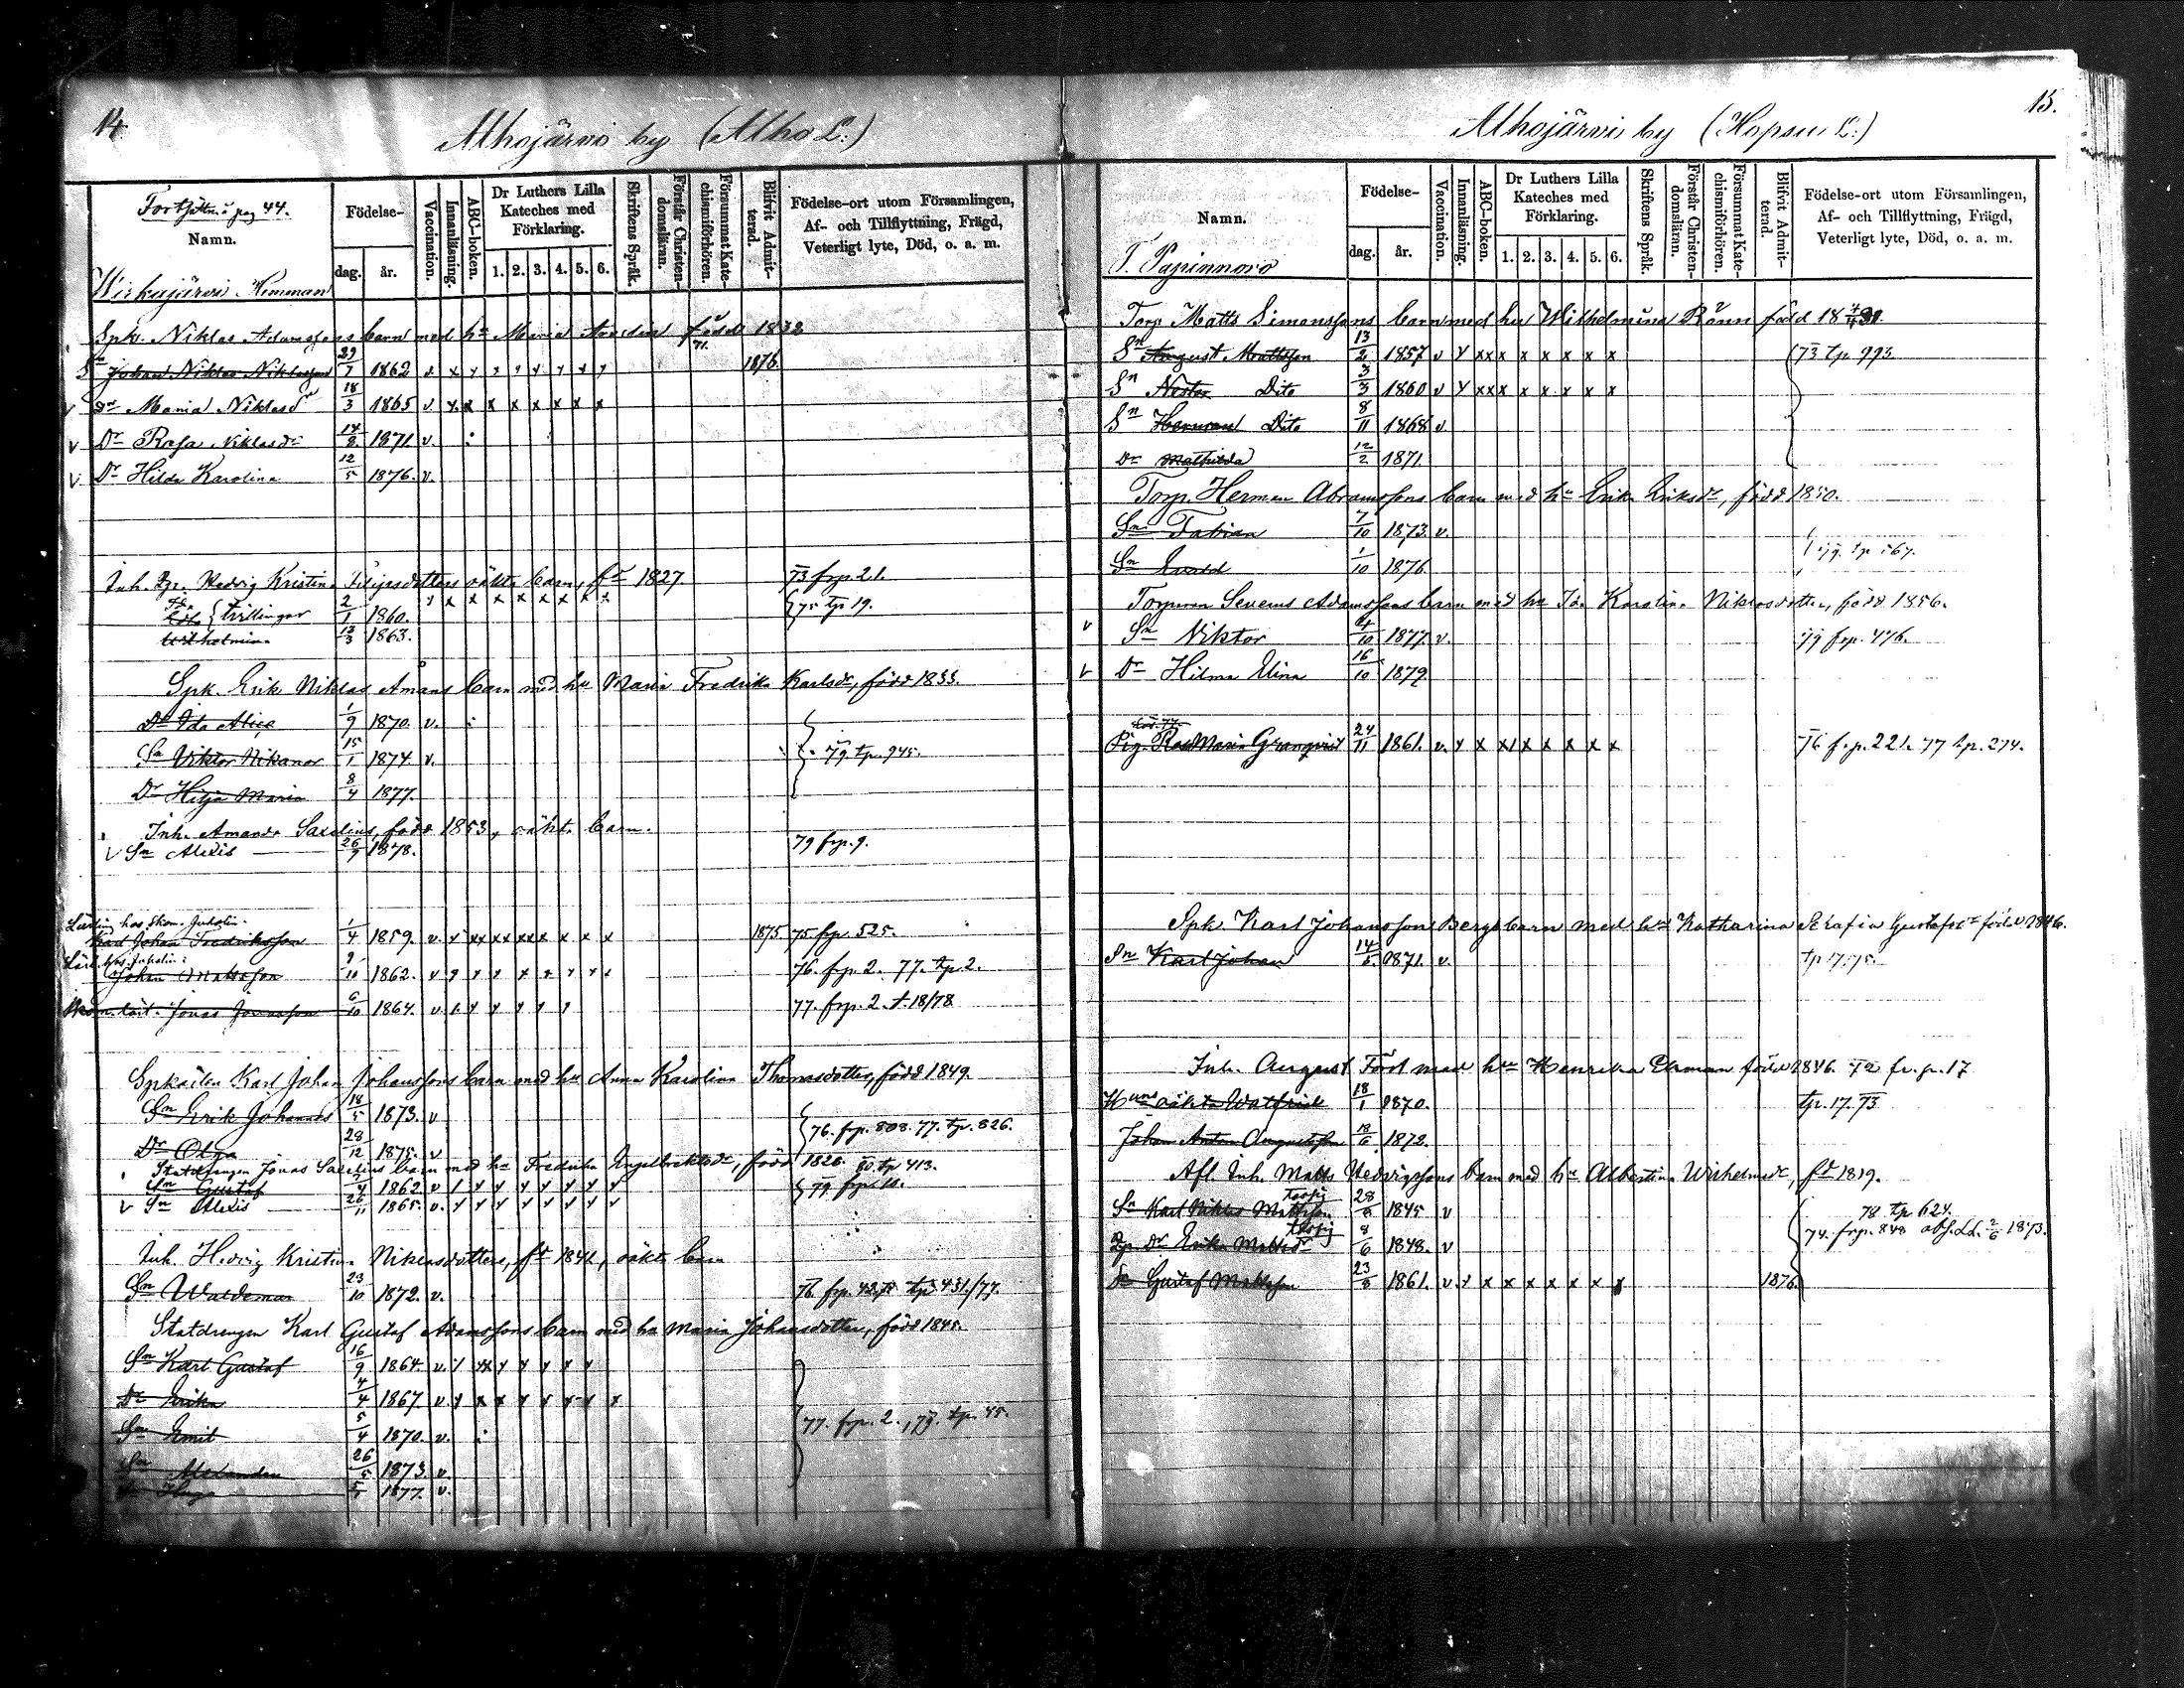 14
Alhojärvi by (Alho L:)
Fortsättn: å pag 44.
Namn.
Födelse-
dag.
år.
Vaccination.
Innanläsning.
ABC-boken.
Dr Luthers Lilla
Kateches med
Förklaring.
1. 2. 3. 4. 5. 6.
Skriftens Språk.
Förstår Christen-
domsläran.
Försummat Kate-
chismiförhören.
Blifvit Admit-
terad.
Födelse-ort utom Församlingen,
Af- och Tillflyttning, Frägd,
Veterligt lyte, Död, o. a. m.
Wirkajärvi Hemman
Spk. Niklas Adamssons barn med hu Maria född 1832
Sn Johan Niklas Niklasson 29/7 1862 v x x x x x x x x 1876.
v Dr Maria Niklasdr 18/3 1865 v. x. x x x x x x x
v Dr Rosa Niklasdr 14/2 1871. v.
v Dr Hilda Karolina 12/5 1876. v.
Inh. Hedvig Kristina Filipsdotters oäkta barn, fd 1827 73 frp 21.
Ida trillingar 2/1 1860. x x x x x x x x {75 tp 19.
Wilhelmina 12/3 1863.
Spk. Erik Niklas Åmans barn med hu Maria Fredrika Karlsdr, född 1833.
Dr Ida Alice 1/9 1870. v.
Sn Viktor Nikanor 15/1 1874 v. 79. tp. 945.
Dr Hilja Maria 8/4 1877.
Inh. Amanda Saxelius, född 1853, oäkta barn.
v Sn Alexis 26/7 1878. 79 frp. 9.
Lärling hos Skom. Juholin.
Karl Johan Fredriksson 1/4 1859. v. x xx xx xxx x x x 1875 75 frp. 525.
Johan Mattsson 9/10 1862. v 76. frp. 2. 77. tp. 2.
Jonas Jonasson 6/10 1864. v. 77. frp. 2. t. 18/78
Karl Johan Johanssons barn med hu Anna Karolina Thomasdotter, född 1849.
Sn Erik Johannes 18/5 1873. v
Dr Olga 28/12 1875. v {76. frp. 808. 77. tp. 826.
Statdrengen Jonas Saxelius barn med hu Fredrika Engelbrektsdr, född 1826. 80 tp 413.
Sn Gustaf 1862 v {79. frp. 10.
v Sn Alexis 26/11 1865. v.
Inh. Hedvig Kristina Niklasdotters, fd 1842, oäkta barn
Sn Waldemar 23/10 1872. v. 76 frp. 42. tp 431./77.
Statdrengen Karl Gustaf Adamssons barn med hu Maria Johansdotter, född 1845.
Sn Karl Gustaf 16/9 1864. v.
Dr Erika 4/4 1867 v.
Sn Emil 5/4 1870. v. 77. frp. 2., 79. tp. 45.
Sn Alexander 26/5 1873. v.
Sn Hugo 1877. v.
15.
Alhojärvi by (Hopsu L:)
Namn.
Födelse-
dag.
år.
Vaccination.
Innanläsning.
ABC-boken.
Dr Luthers Lilla
Kateches med
Förklaring.
1. 2. 3. 4. 5. 6.
Skriftens Språk.
Förstår Christen-
domsläran.
Försummat Kate-
chismiförhören.
Blifvit Admit-
terad.
Födelse-ort utom Församlingen,
Af- och Tillflyttning, Frägd,
Veterligt lyte, Död, o. a. m.
T. Papinnoro
Torp. Matts Simonssons barn med hu Wilhelmina Rönn född
Sn August Mattsson 13/2 1857 v x xx x x x x x x 73 tp. 993.
Sn Nestor Dito 3/3 1860 v x xxx x x x x x
Sn Herman Dito 8/11 1868 v.
Dr Mathilda 12/2 1871.
Torp. Herman Abramssons barn med hu Erika Eriksdr, född 1850.
Sn Fabian 7/10 1873. v.
Sn Evald 1/10 1876. 79. tp 567.
Torparen Severus Adamssons barn med hu Ida Karolina Niklasdotter, född 1856.
v Sn Viktor 4/10 1877. v. 79 frp. 476.
v Dr Hilma Elina 16/10 1879.
Pig. Rosa Maria Granqvist 24/11 1861. v. x x xx x x x x x 76 frp. 221. 77 tp. 274.
Spk Karl Johansson Bergs barn med hu Katharina Serafia Gustafsdr född 1846.
Sn Karl Johan 14/5 1871. v. tp 17.75.
Inh. August Fast med hu Henrika Ekman född 1846. 72 fr. p. 17
Hu:s oäkta Walfrid 18/1 1870. tp. 17. 73
Johan Anton Augustsson 18/6 1872.
Afl. Inh. Matts Hedvigssons barn med hu Albertina Wilhelmsdr, fd 1819.
Sn Karl Niklas Mattsson 28/6 1845 v 78 tp 624.
Dr Erika Mattsdr 8/6 1848. v 74. frp. 848 1873.
Sn Gustaf Mattsson 23/8 1861. v. x x x x x x x x 1876